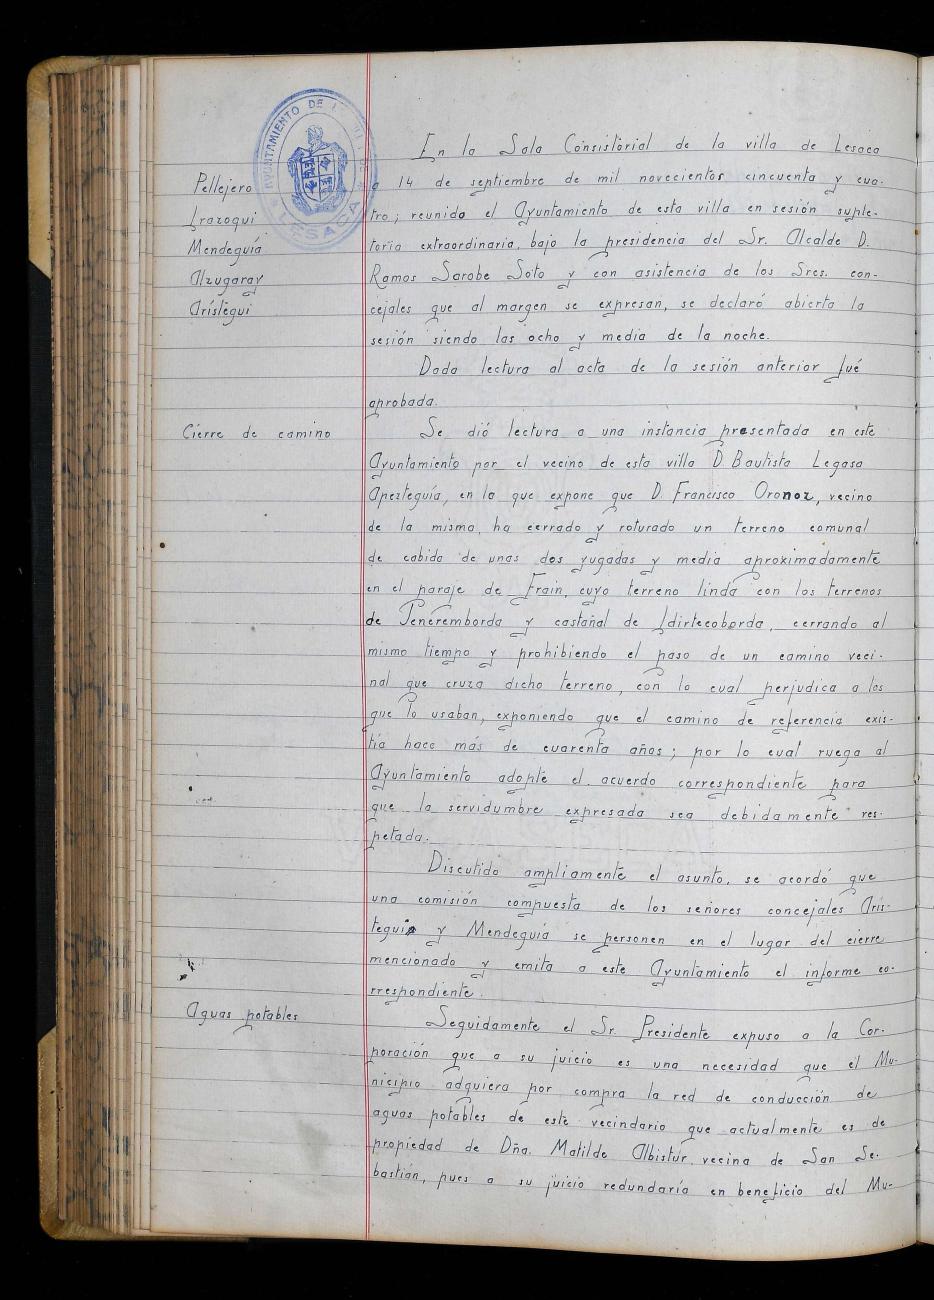 AYUNTAMIENTO DE
LESACA
Pellejero
Irazoqui
Mendeguía
Alzugaray
Arístegui
En la Sala Consistorial de la villa de Lesaca
a 14 de septiembre de mil novecientos cincuenta y cua-
tro; reunido el Ayuntamiento de esta villa en sesión suple-
toria extraordinaria, bajo la presidencia del Sr. Alcalde D.
Ramos Sarobe Soto y con asistencia de los Sres. con-
cejales que al margen se expresan, se declaró abierta la
sesión siendo las ocho y media de la noche.
Dada lectura al acta de la sesión anterior fué
aprobada.
Cierre de camino
Se dió lectura a una instancia presentada en este
Ayuntamiento por el vecino de esta villa D. Bautista Legasa
Apezteguía, en la que expone que D. Francisco Oronoz, vecino
de la misma, ha cerrado y roturado un terreno comunal
de cabida de unas dos yugadas y media aproximadamente
en el paraje de Frain, cuyo terreno linda con los terrenos
de Teneremborda y castañal de Idirtecoborda, cerrando al
mismo tiempo y prohibiendo el paso de un camino veci-
nal que cruza dicho terreno, con lo cual perjudica a los
que lo usaban, exponiendo que el camino de referencia exis-
tía hace más de cuarenta años; por lo cual ruega al
Ayuntamiento adopte el acuerdo correspondiente para
que la servidumbre expresada sea debidamente res-
petada.
Discutido ampliamente el asunto, se acordó que
una comisión compuesta de los señores concejales Arís-
tegui y Mendeguía se personen en el lugar del cierre
mencionado y emita a este Ayuntamiento el informe co-
rrespondiente.
Aguas potables
Seguidamente el Sr. Presidente expuso a la Cor-
poración que a su juicio es una necesidad que el Mu-
nicipio adquiera por compra la red de conducción de
aguas potables de este vecindario que actualmente es de
propiedad de Dña. Matilde Albistur, vecina de San Se-
bastián, pues a su juicio redundaría en beneficio del Mu-